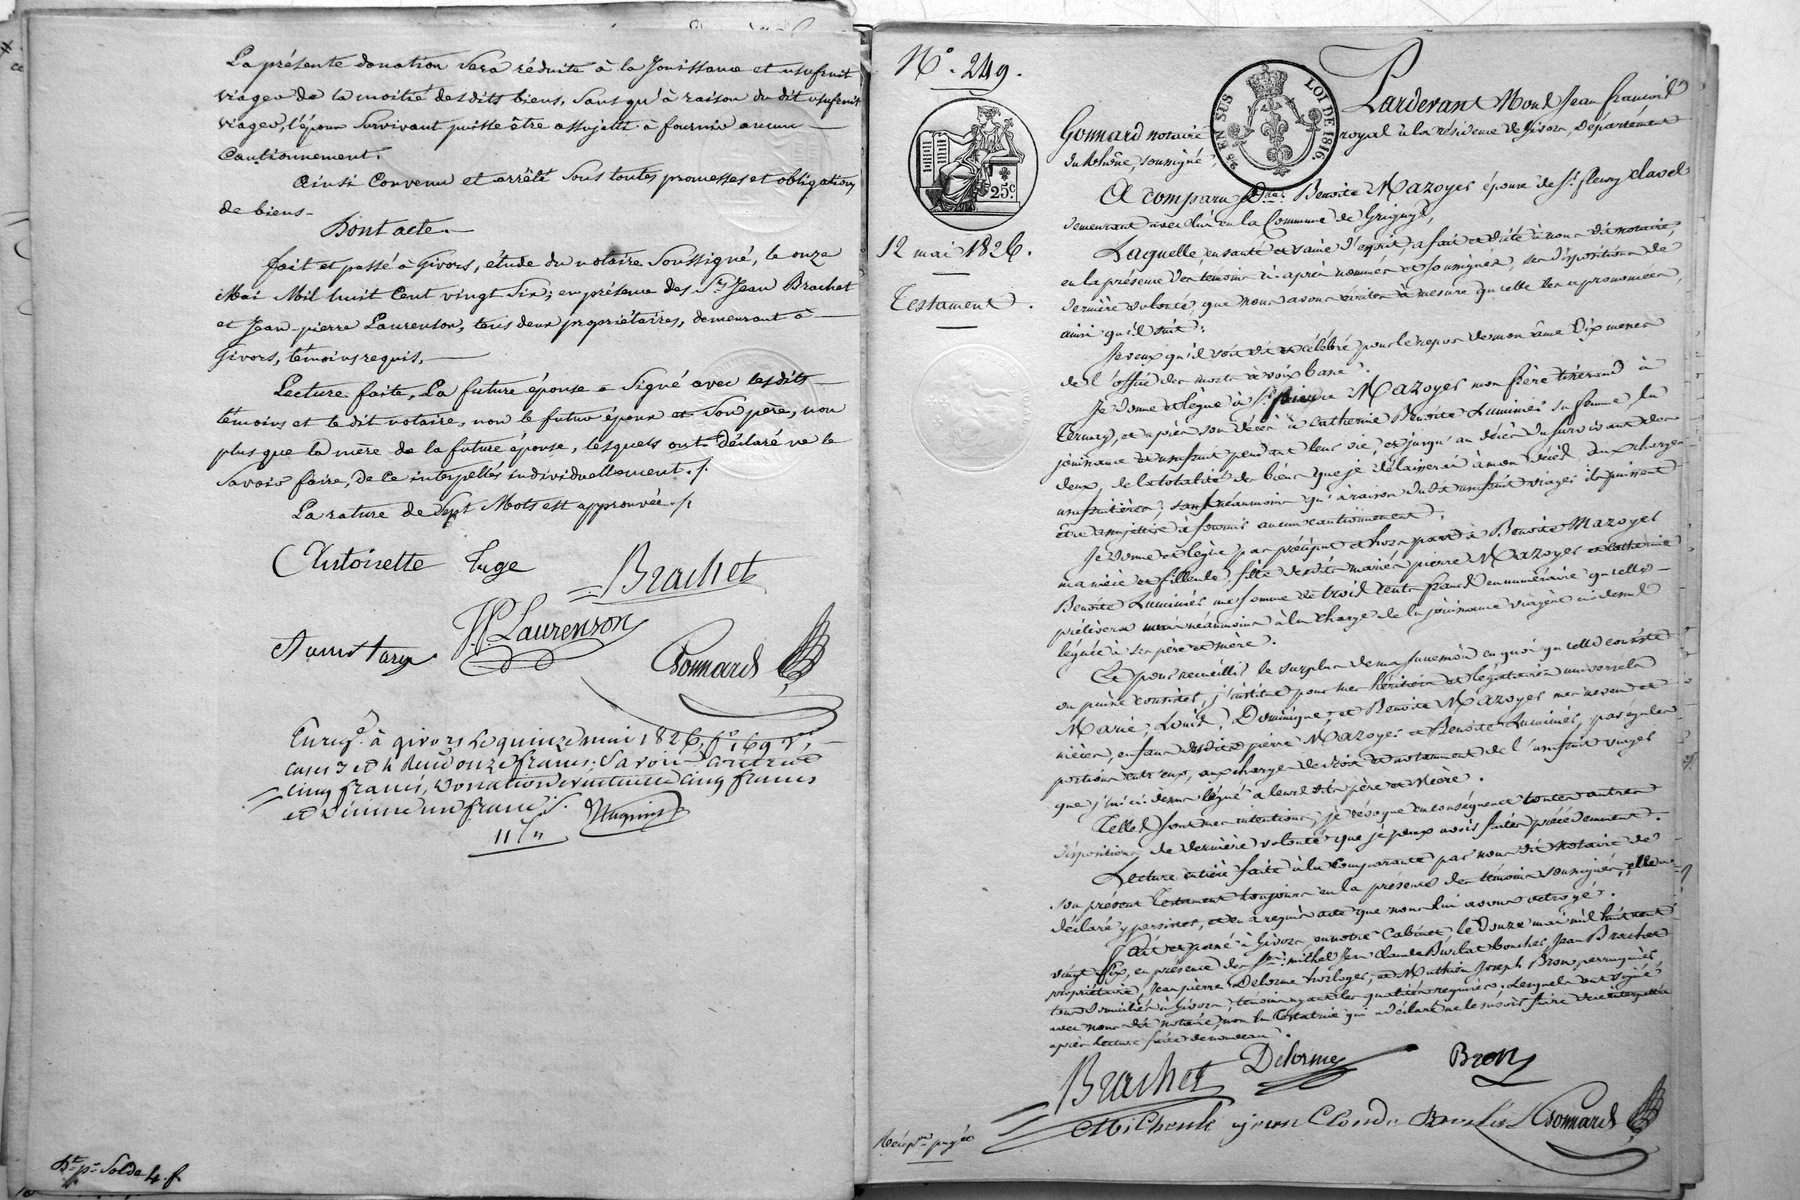 La présente donation sera réduite à la Jouissance et usufruit
viager de la moitié desdits biens, sans qu'à raison du dit usufruit
viager, l'époux survivant puisse être assujetti à fournir aucun
Cautionnement.
Ainsi Convenu et arrêté sous toutes promesses et obligations
de biens.
Dont acte.
fait et passé à Givors, étude du notaire Soussigné, le onze
Mai Mil huit Cent vingt Six; en présence des Srs Jean Brachet
et Jean-pierre Laurenson, tous deux propriétaires, demeurant à
Givors, témoins requis,
Lecture faite, La future épouse a Signé avec lesdits
témoins et le dit notaire, non le futur époux et Son père, non
plus que la mère de la future épouse, lesquels ont déclaré ne le
savoir faire, de ce interpellés individuellement./.
La rature de Sept Mots est approuvée./.
Antoinette Luge
Brachet
JPLaurenson
Gonnard
Enregé. à givors le quinze mai 1826, fo 169 vo,
cases 3 et 4 Reçu onze francs, Savoir Contrat
Cinq francs, Donation éventuelle Cinq francs
et Dixime un franc
11f"
Dt pr Solde 4. f.
No. 249.
25 EN SUS
LOI DE 1816.
25c
12 mai 1826.
Testament.
Pardevant Nous Jean françois
Gonnard notaire royal à la résidence de Givors, Département
du Rhône, soussigné,
A comparu Dme Benoite Mazoyer épouse de Sr fleury clavel
demeurant avec lui en la Commune de Grigny,
Laquelle, en santé et saine d'esprit, a fait et dicté à nous dit notaire,
en la présence des témoins ci-après nommés et soussignés, ses dispositions de
dernière volonté, que nous avons écrites à mesure qu'elle les a prononcées,
ainsi qu'il suit:
Je veux qu'il soit dit et célébré pour le repos de mon âme Dix messes
de l'office des morts à voix basse.
Je donne et lègue à Sr pierre Mazoyer mon frère tisserand à
Ternay, et après son décès à Catherine Benoite Luminés sa femme, la
jouissance et usufruit pendant leur vie, et jusqu'au décès du survivant des
deux, de la totalité des biens que je délaisserai à mon décès, aux charges
usufruitières; sans néanmoins qu'à raison du dit usufruit viager ils puissent
être assujettis à fournir aucun cautionnement.
Je donne et lègue par préciput et hors part à Benoite Mazoyer
ma nièce et filleule, fille desdits mariés pierre Mazoyer et Catherine
Benoite Luminés une somme de trois cents francs en numéraire qu'elle
prélèvera néanmoins à la charge de la jouissance viagère ci-dessus
léguée à ses père et mère.
Et pour recueillir le surplus de ma succession en quoi qu'elle consiste
ou puisse consister, j'institue pour mes héritiers et légataires universels
Marie, Louis, Dominique, et Benoite Mazoyer mes neveu et
nièces, enfans desdits pierre Mazoyer et Benoite Luminés, par égales
portions entr'eux, aux charges de droit et notamment de l'usufruit viager
que j'ai ci-dessus légué à leurs dits père et Mère.
Telles sont mes intentions; je révoque en conséquence toutes autres
dispositions de dernière volonté que je peux avoir faites précédemment.
Lecture entière faite à la Comparante par nous dit notaire de
son présent Testament toujours en la présence des témoins soussignés, elle a
déclaré y persister, et en a requis acte que nous lui avons octroyé.
fait et passé à Givors, en notre Cabinet, le Douze mai mil huit cent
vingt Six, en présence des Srs Jean Claude boucher, Jean Brachet
propriétaire, Jean pierre Delorme horloger, et Mathieu Joseph Bron perruquier
tous domiciliés à Givors, témoins ayant les qualités requises, Lesquels ont signé
avec nous dit notaire, non la testatrice qui a déclaré ne le savoir faire de ce interpellée
après lecture faite de nouveau.
Brachet
Delorme
Bron
jean Claude
Gonnard